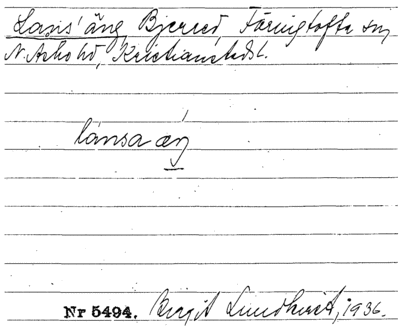 Lasis' äng, Bjärred, Färingtofta sn,
N. Åsbo hd, Kristianstads l.
länsa äŋ
Nr 5494. Birgit Lundkvist, 1936.